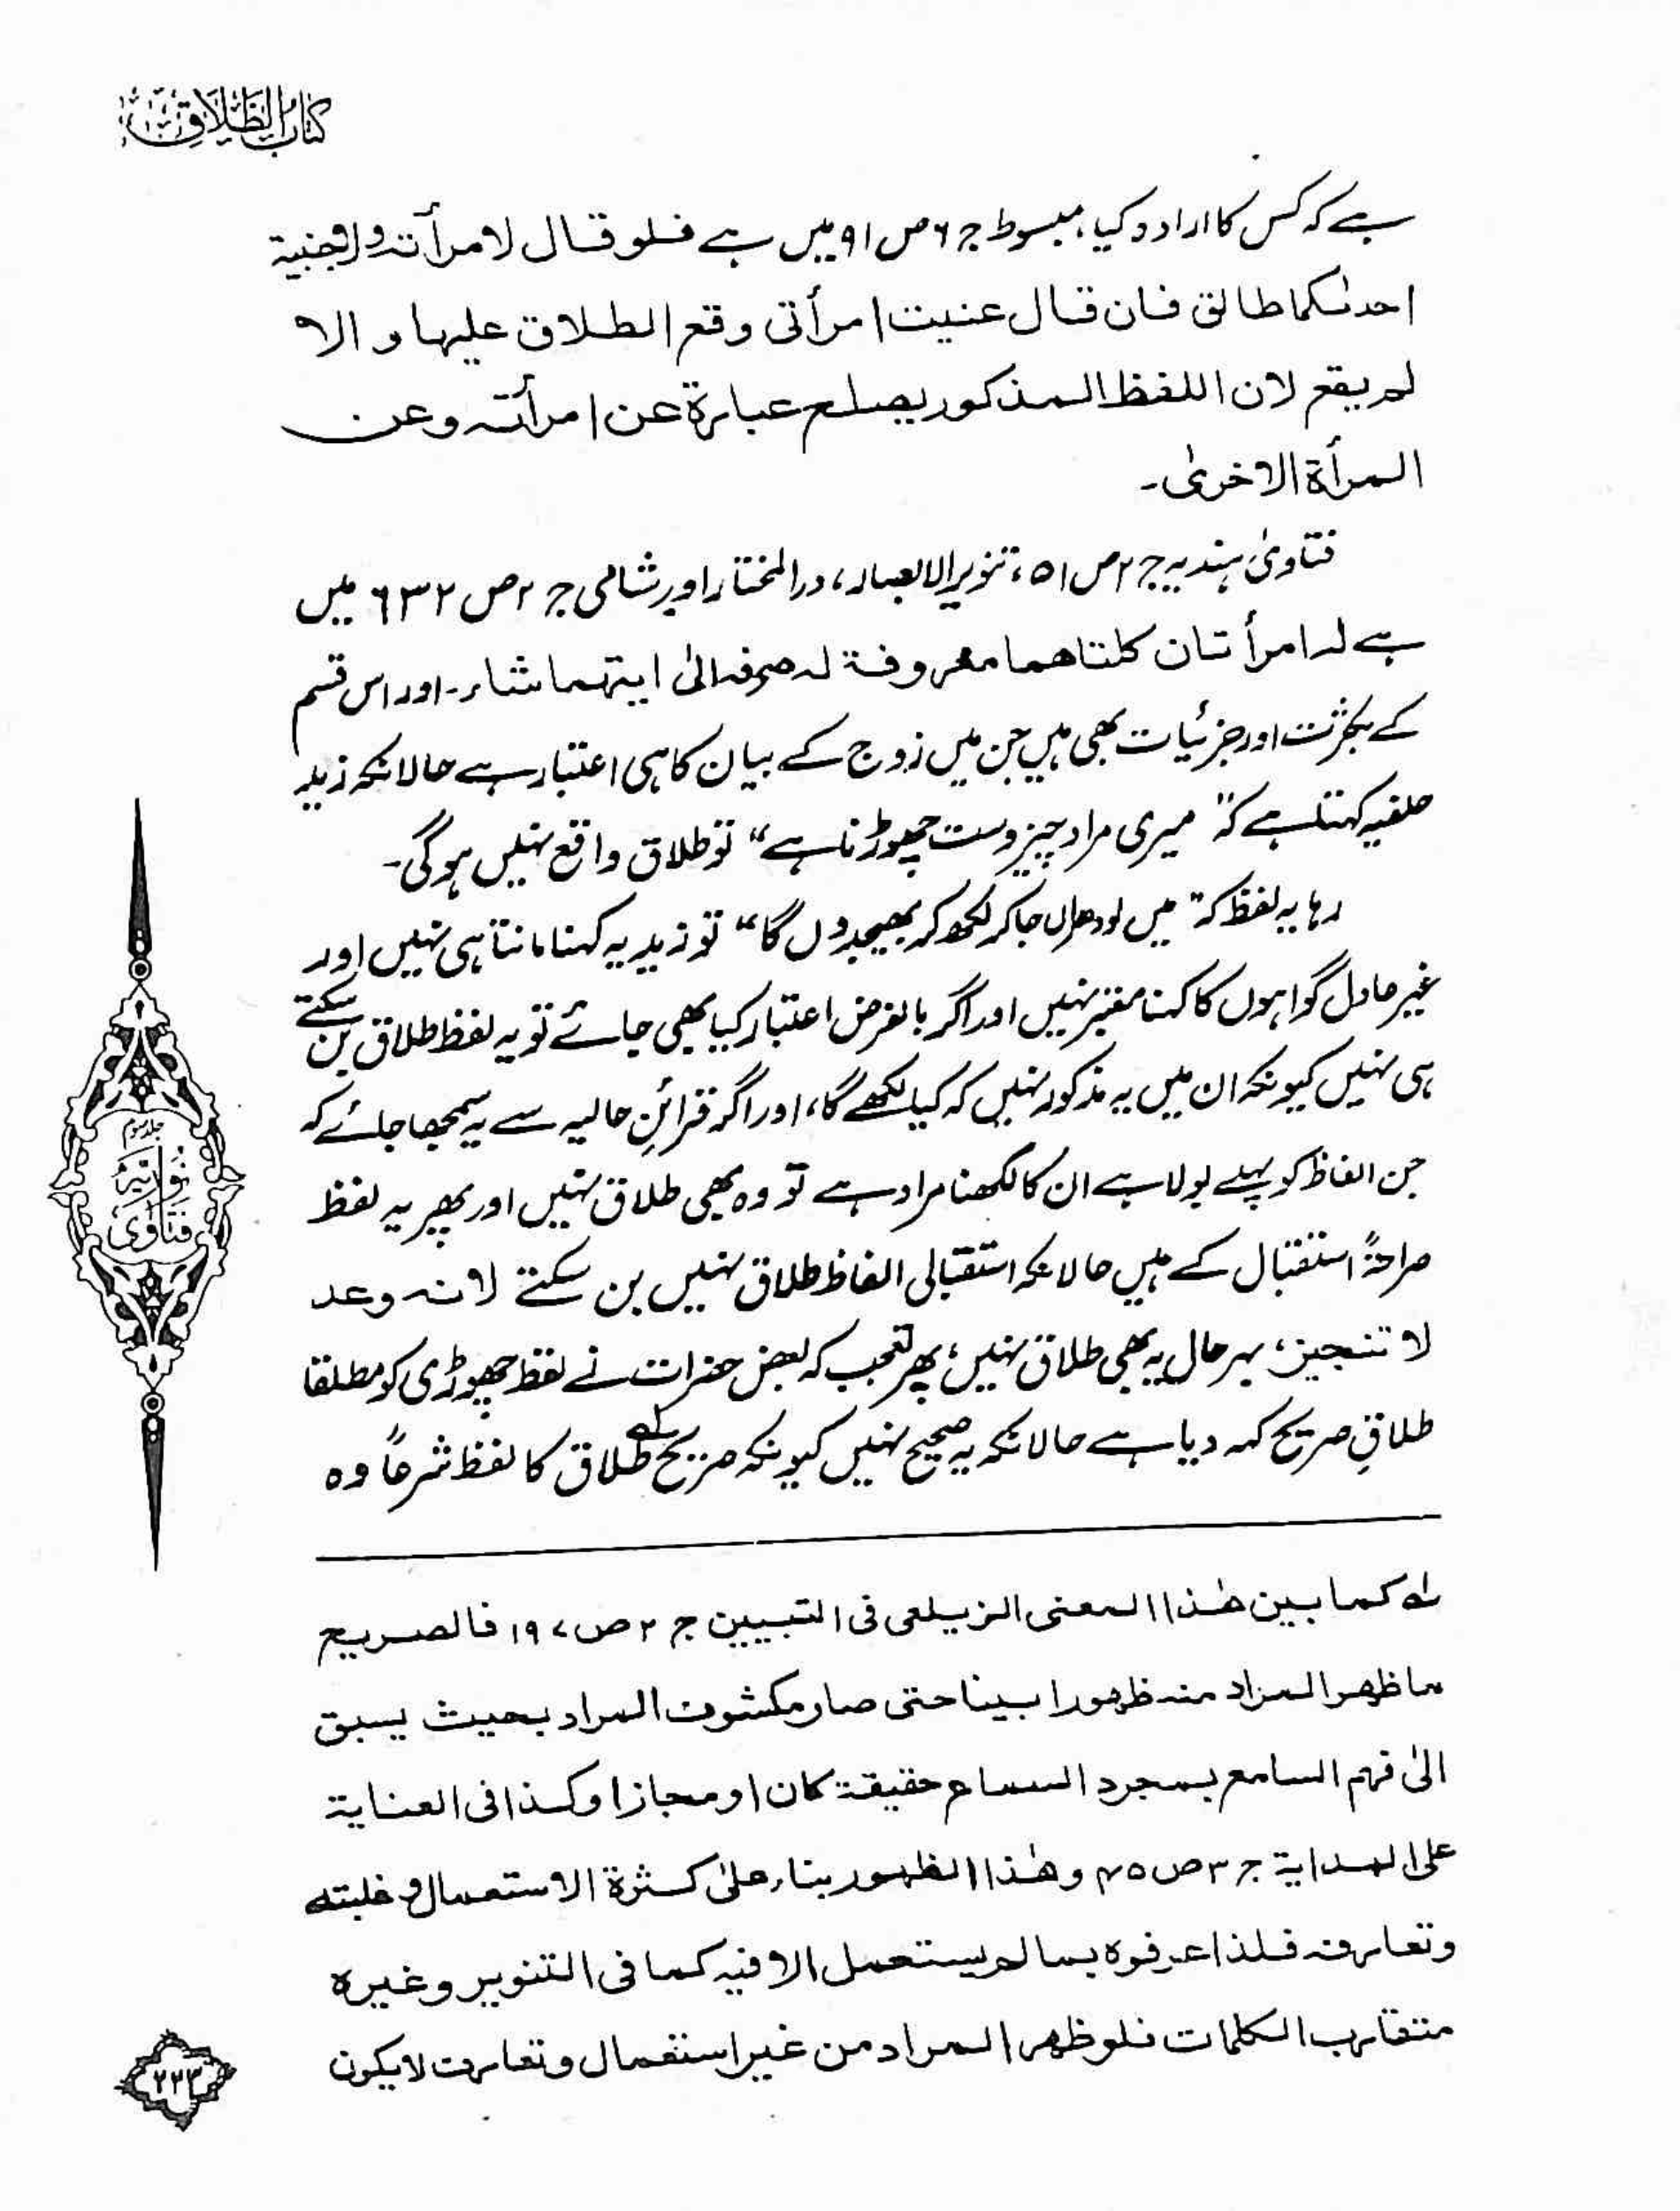 كتاب الطلاق
ہے کہ کس کا ارادہ کیا، مبسوط ج ۶ ص ۹۱ میں ہے فلو قال لامرأته ولاجنبية
احدٰىكما طالق فان قال عنيت امرأتی وقع الطلاق عليها و الا
لم يقع لان اللفظ المذكور يصلح عبارة عن امرأته وعن
المرأة الاخرىٰ۔
فتاویٰ ہندیہ ج ۲ ص ۵۱، تنویر الابصار، در المختار اور شامی ج ۲ ص ۶۳۲ میں
ہے له امرأتان كلتاهما معروفة له صرفه الىٰ ايتهما شاء۔ اور اس قسم
کے بکثرت اور جزئیات بھی ہیں جن میں زوج کے بیان کا ہی اعتبار ہے حالانکہ زید
حلفیہ کہتا ہے کہ " میری مراد چیز وست چھوڑنا ہے" تو طلاق واقع نہیں ہوگی۔
رہا یہ لفظ کہ " میں لودھراں جا کر لکھ کر بھیجدوں گا" تو زید یہ کہنا مانتا ہی نہیں اور
غیر عادل گواہوں کا کہنا معتبر نہیں اور اگر بالفرض اعتبار کیا بھی جائے تو یہ لفظ طلاق بن سکتے
ہی نہیں کیونکہ ان میں یہ مذکور نہیں کہ کیا لکھے گا، اور اگر قرائنِ حالیہ سے یہ سمجھا جائے کہ
جن الفاظ کو پہلے بولا ہے ان کا لکھنا مراد ہے تو وہ بھی طلاق نہیں اور پھر یہ لفظ
صراحۃً استقبال کے ہیں حالانکہ استقبالی الفاظ طلاق نہیں بن سکتے لانه وعد
لا تنجيز، بہر حال یہ بھی طلاق نہیں، پھر تعجب کہ بعض حضرات نے لفظ چھوڑی کو مطلقا
طلاقِ صریح کہہ دیا ہے حالانکہ یہ صحیح نہیں کیونکہ صریح طلاق کا لفظ شرعاً وہ
جلد سوم
فتاوىٰ نوريه
له كما بين هٰذا المعنى الزيلعى فى التبيين ج ۲ ص ۱۹۷ فالصريح
ما ظهر المراد منه ظهورا بينا حتى صار مكشوف المراد بحيث يسبق
الىٰ فهم السامع بمجرد السماع حقيقة كان او مجازا وكذا فى العناية
على الهداية ج ۳ ص ۴۵ وهٰذا الظهور بناء علىٰ كثرة الاستعمال و غلبته
وتعارفه فلذا عرفوه بما لم يستعمل الا فيه كما فى التنوير وغيره
متقارب الكلمات فلو ظهر المراد من غير استعمال وتعارف لا يكون
۲۳۳